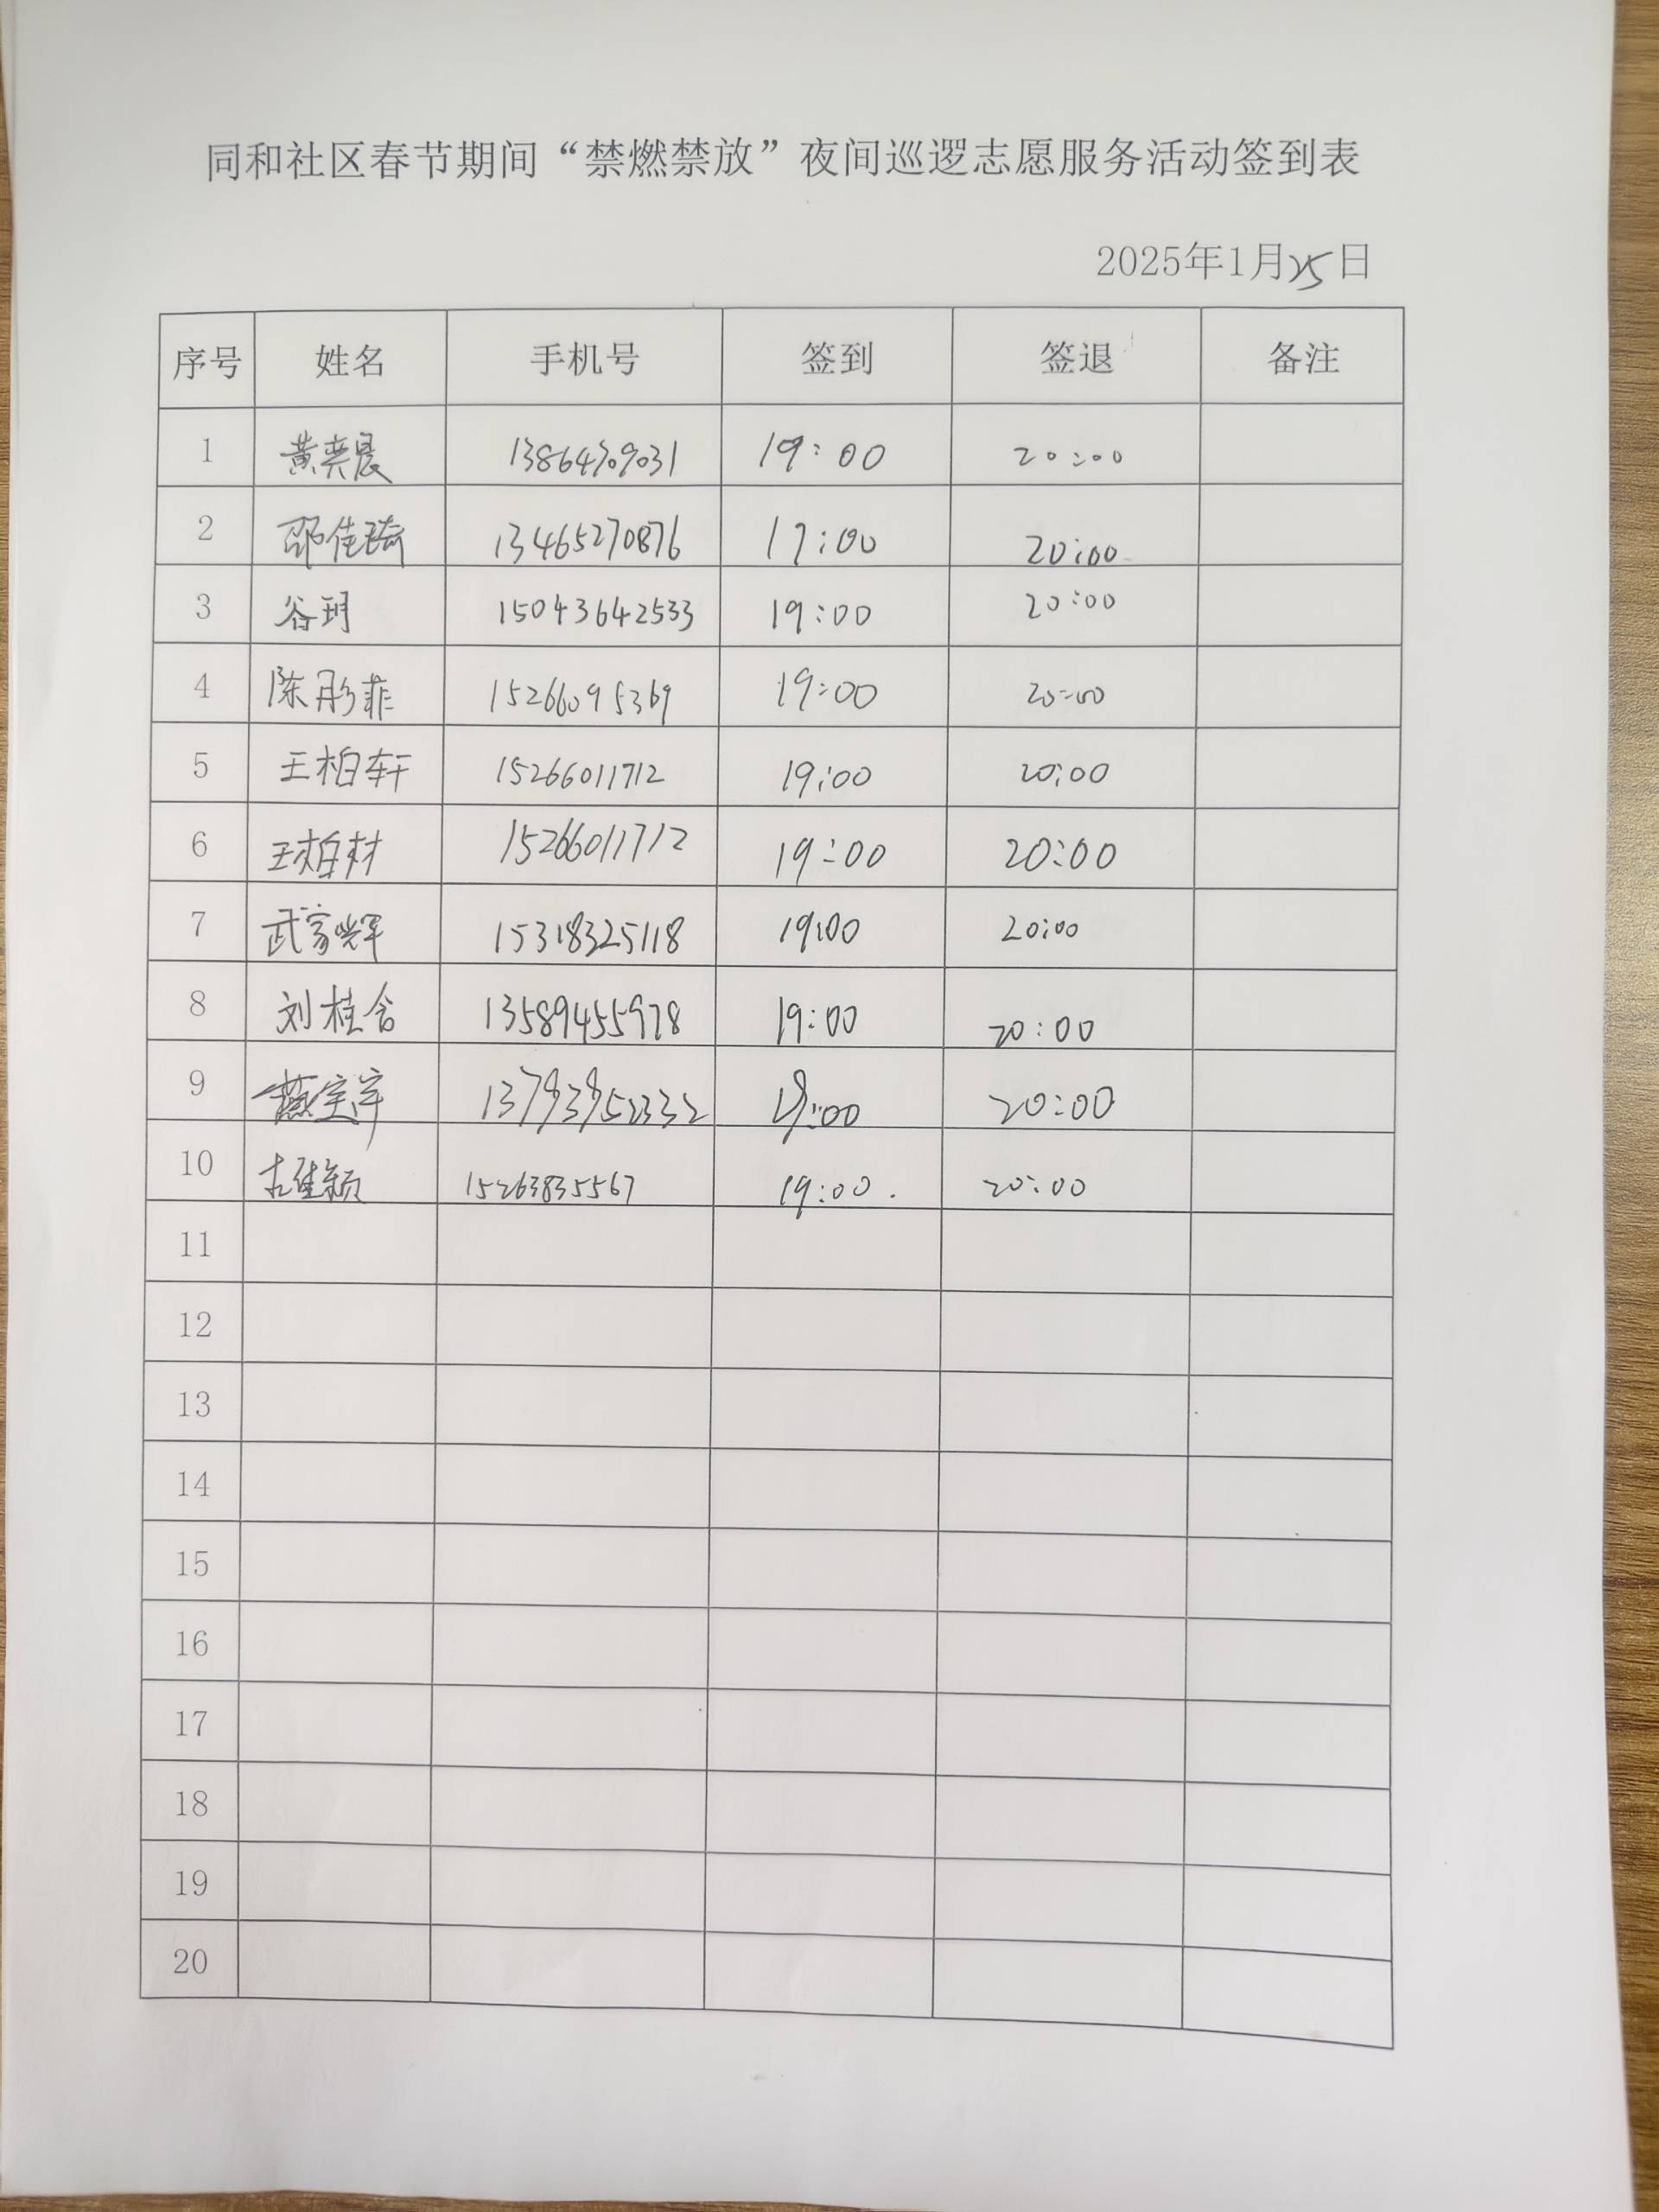 同和社区春节期间“禁燃禁放”夜间巡逻志愿服务活动签到表
2025年1月25日
序号 姓名 手机号 签到 签退 备注
1 黄奕晨 13864709031 19:00 20:00
2 邵佳琦 13465270876 17:00 20:00
3 谷玥 15043642533 19:00 20:00
4 陈彤菲 15266095369 19:00 20:00
5 王柏轩 15266011712 19:00 20:00
6 王柏材 15266011712 19:00 20:00
7 武家辉 15318325118 19:00 20:00
8 刘桂含 13589455978 19:00 20:00
9 19:00 20:00
10 15263835567 19:00. 20:00
11
12
13
14
15
16
17
18
19
20